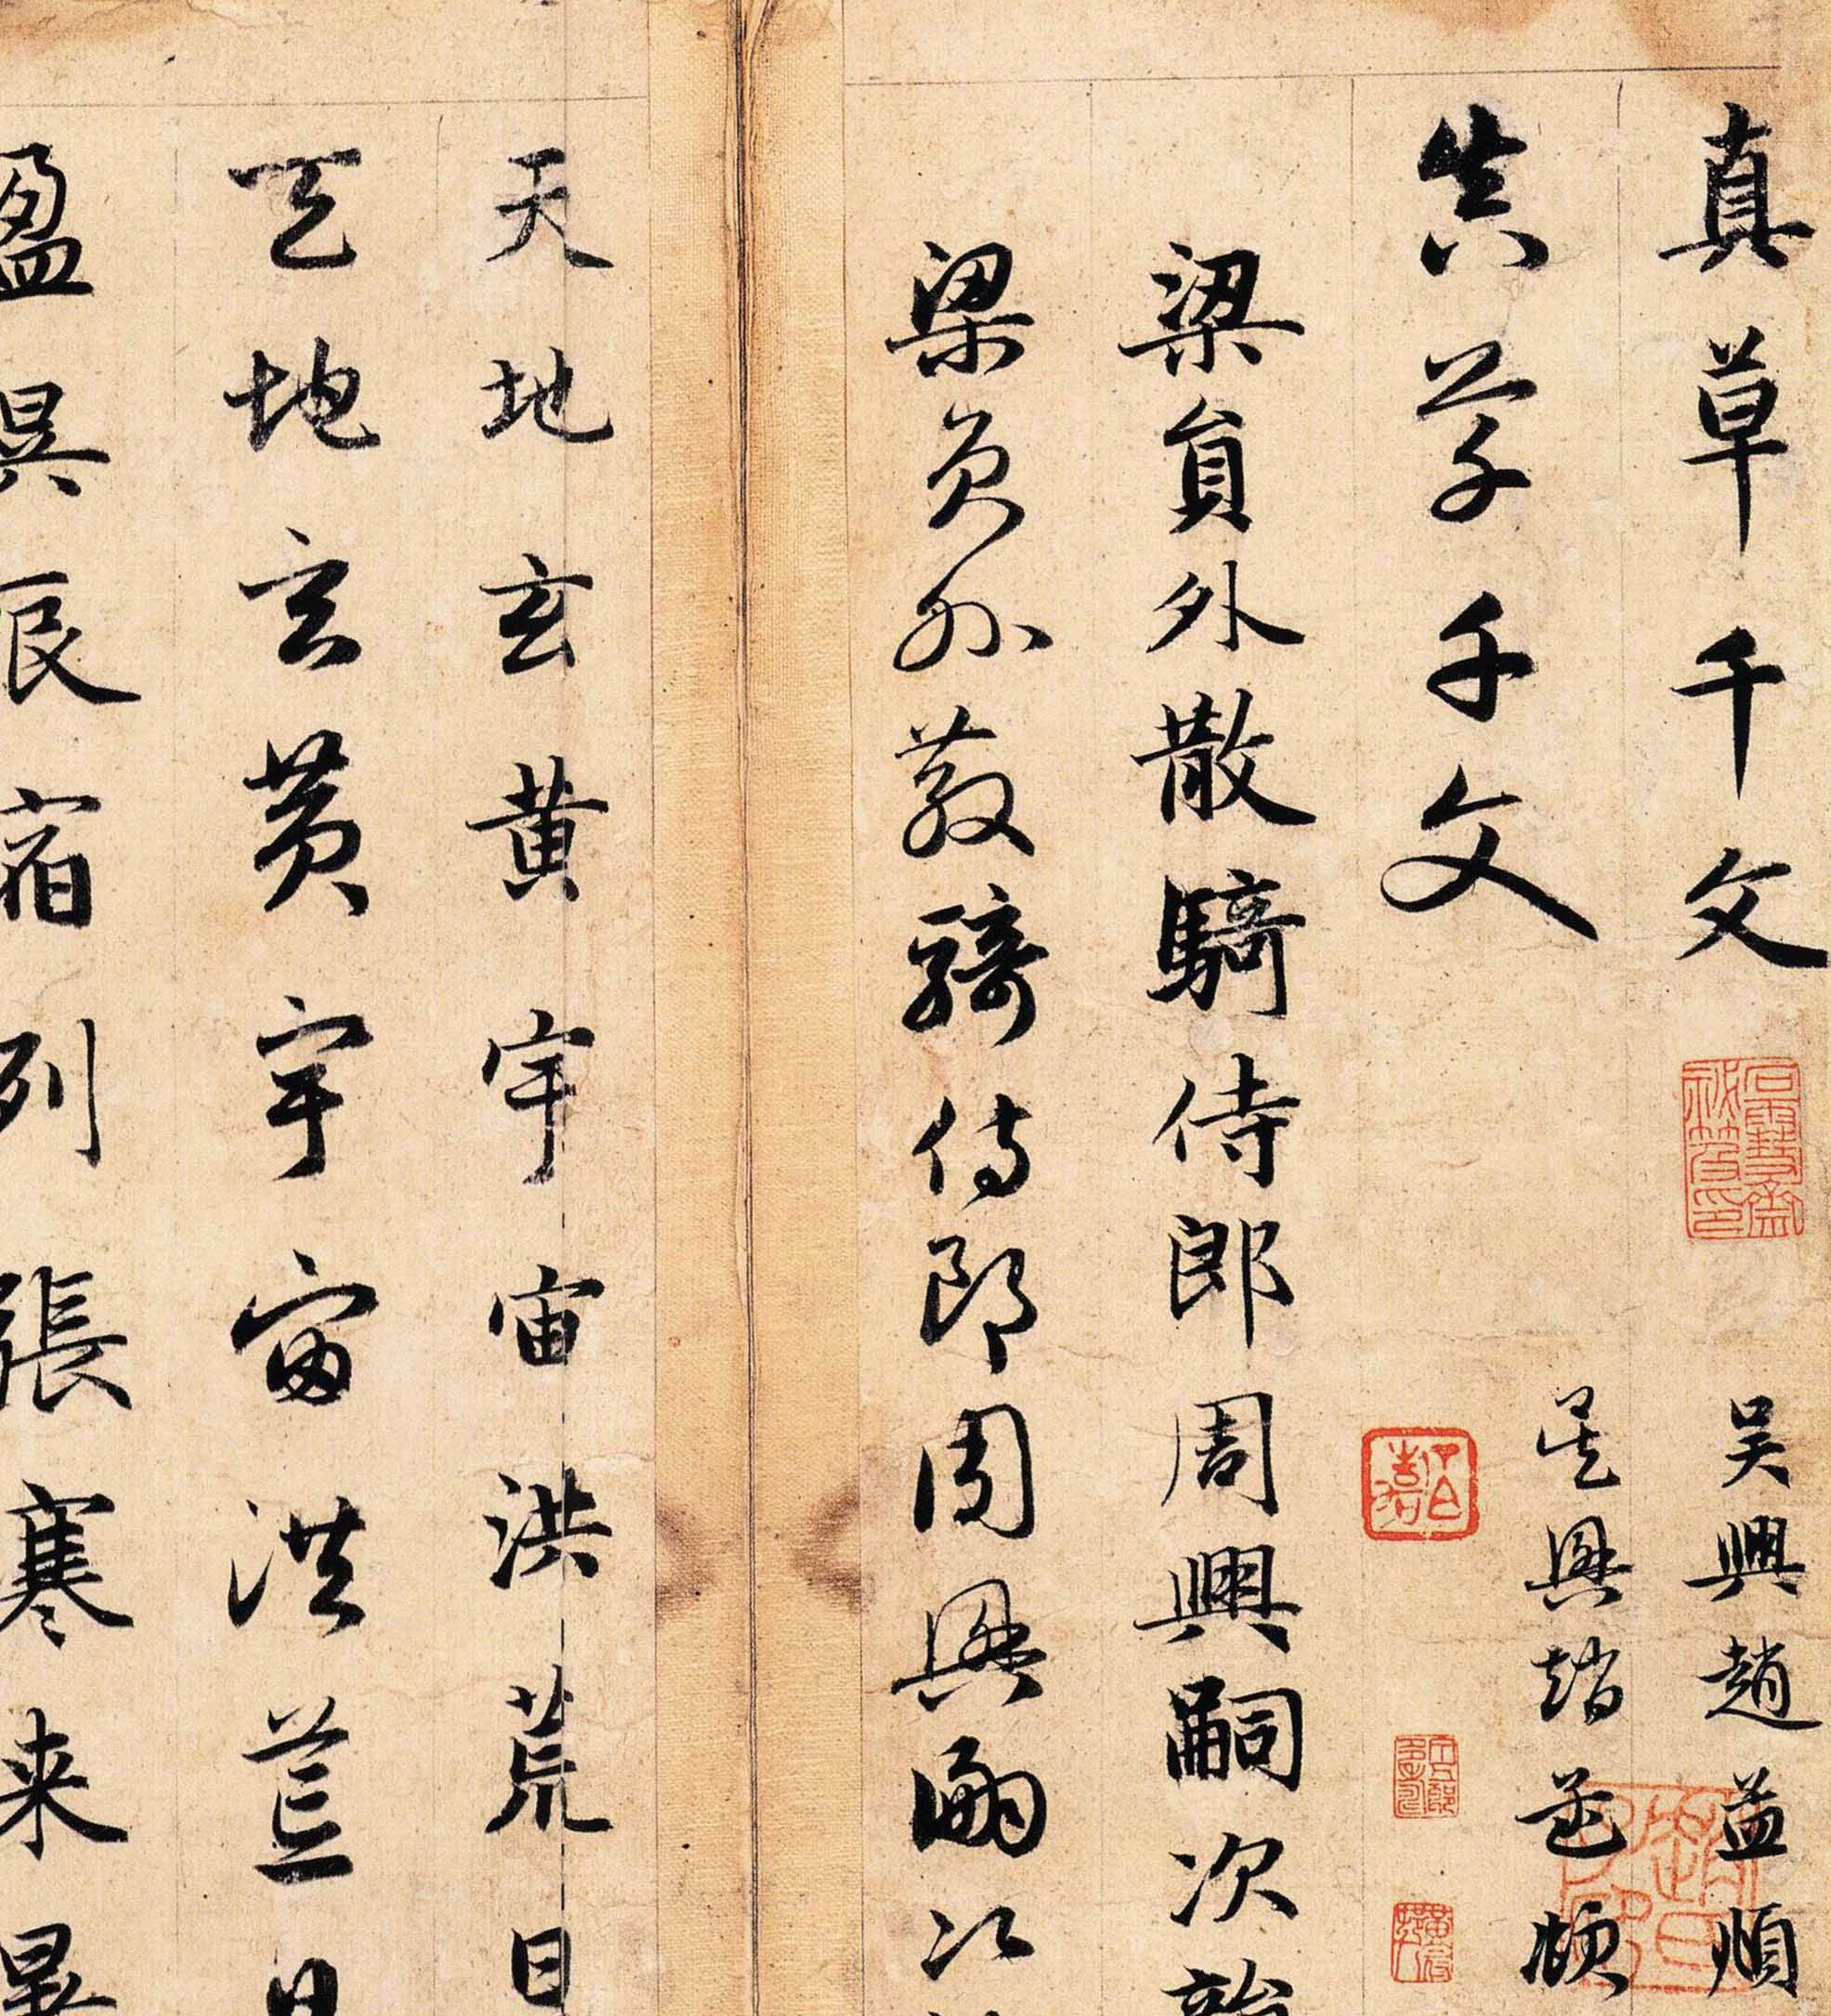 真草千文
吴興趙孟頫
真草千文
吴興趙孟頫
梁員外散騎侍郎周興嗣次韻
梁員外散騎侍郎周興嗣次
天地玄黄宇宙洪荒日
天地玄黄宇宙洪荒日
盈昃辰宿列張寒来暑